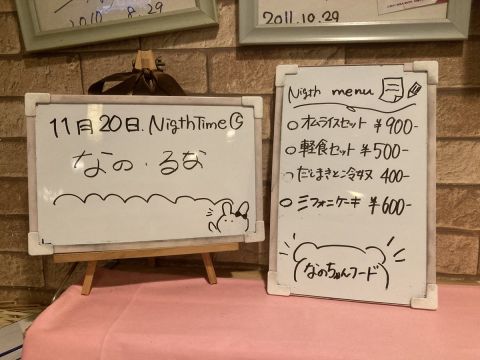 2010 8.29
2011.10.29
11月20日. NigthTime
なの・るな
Nigth menu
オムライスセット ¥900-
軽食セット ¥500-
だしまきと冷奴 400-
ミフォニケーキ ¥600-
なのちゅんフード